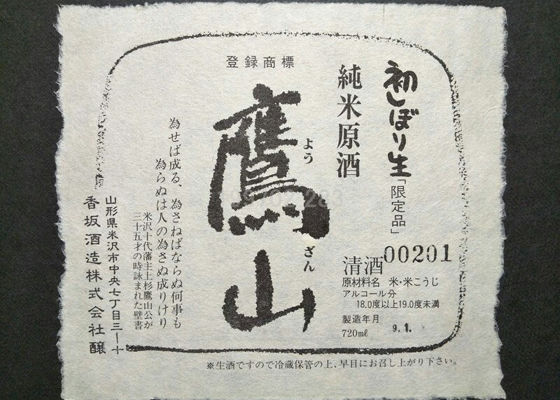 登録商標
初しぼり生「限定品」
純米原酒
鷹山
よう
ざん
清酒
00201
原材料名 米・米こうじ
アルコール分
18.0度以上19.0度未満
製造年月
720mℓ 9.1.
為せば成る、為さねばならぬ何事も
為らぬは人の為さぬ成りけり
米沢十代藩主上杉鷹山公が
三十五才の時詠まれた壁書
山形県米沢市中央七丁目三ー十
香坂酒造株式会社醸
※生酒ですので冷蔵保管の上、早目にお召し上がり下さい。